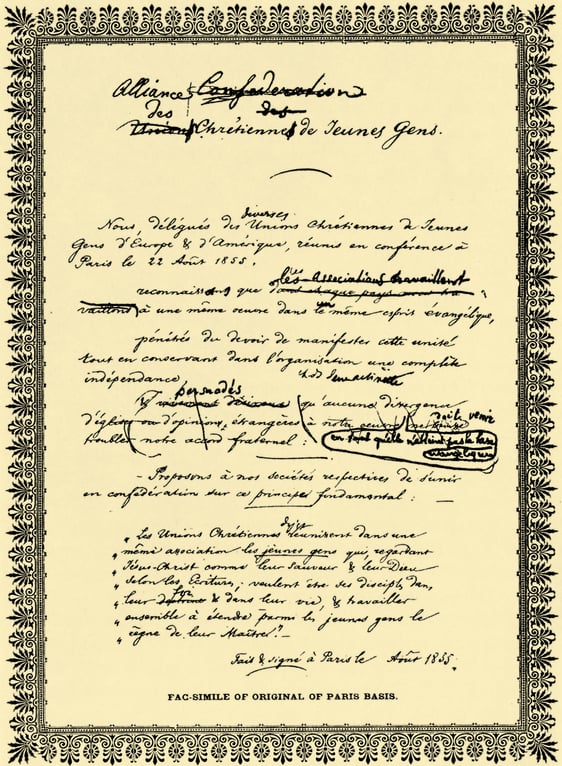 Alliance Confédération
des des
Unions Chrétiennes de Jeunes Gens.
diverses
Nous, délégués des Unions Chrétiennes de Jeunes
Gens d'Europe & d'Amérique, réunis en conférence à
Paris le 22 Août 1855,
les Associations travaillent
reconnaissant que
vaillons à une même oeuvre dans un même esprit évangélique,
pénétrés du devoir de manifester cette unité
tout en conservant dans l'organisation une complète
indépendance
persuadés
& vivement désireux qu'aucune divergence
d'église ou d'opinions, étrangères à notre oeuvre ne puisse doit venir
troubler notre accord fraternel : en tant qu'elle n'atteint pas la base
évangélique
- Proposons à nos sociétés respectives de s'unir
en confédération sur ce principe fondamental : —
„ Les Unions Chrétiennes réunissent dans une
„ même association les jeunes gens qui regardant
„ Jésus-Christ comme leur Sauveur & leur Dieu
„ selon les Ecritures, veulent être ses disciples dans
foi
„ leur doctrine & dans leur vie, & travailler
„ ensemble à étendre parmi les jeunes gens le
„ règne de leur Maître." —
Fait & signé à Paris le Août 1855.
FAC-SIMILE OF ORIGINAL OF PARIS BASIS.